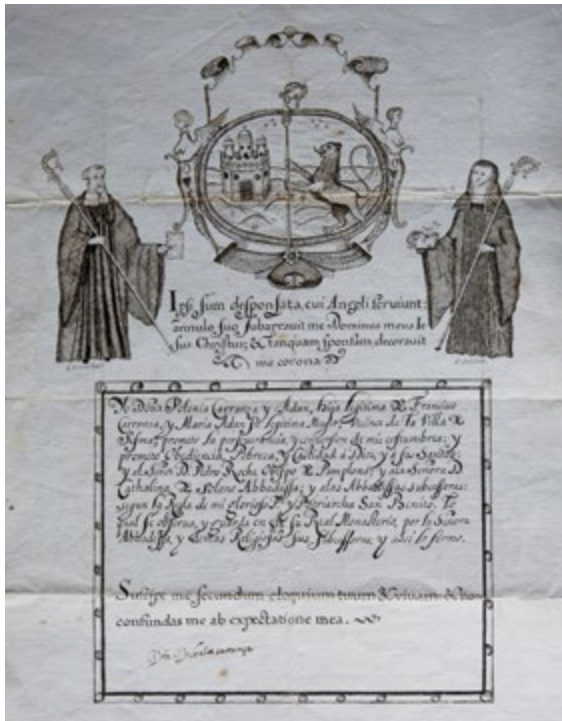 Ipsi sum desponsata, cui Angeli serviunt:
annulo suo subarravit me Dominus meus Ie
sus Christus; & tanquam sponsam decoravit
me corona
Yo Doña Polonia Carranza y Adan, hija legitima de Francisco
Carranza, y Maria Adan su legitima Muger, Vecina de la Villa de
prometo la perseverancia, y conversion de mis costumbres; y
prometo Obediencia, Pobreza, y Castidad à Dios, y a su Santos;
y al Señor D. Pedro Roche Obispo de Pamplona; y ala Señora D.
Cathalina de Solano Abbadessa; y alas Abbadessas subcessoras:
segun la Regla de mi glorioso P. y Patriarcha San Benito. la
qual se observa, y guarda en su Real Monasterio, por la Señora
Abbadessa, y Religiosas sus y assi lo firmo.
Suscipe me secundum eloquium tuum & vivam: & no
confundas me ab expectatione mea.
Carranza